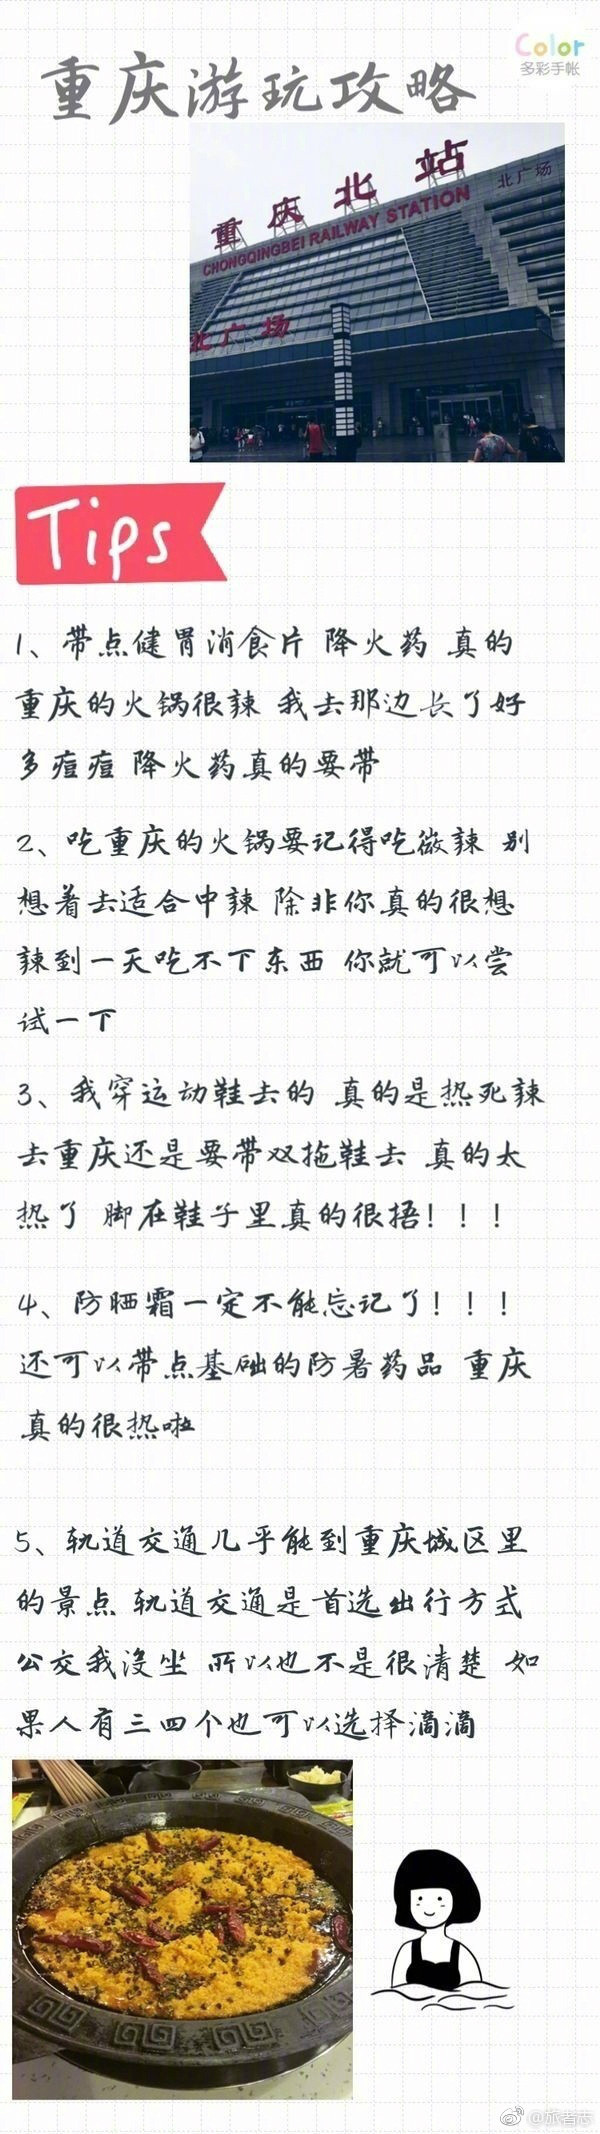 Color
多彩手帐
重庆游玩攻略
重庆北站
北广场
CHONGQINGBEI RAILWAY STATION
北广场
Tips
1、带点健胃消食片 降火药 真的
重庆的火锅很辣 我去那边长了好
多痘痘 降火药真的要带
2、吃重庆的火锅要记得吃微辣 别
想着去适合中辣 除非你真的很想
辣到一天吃不下东西 你就可以尝
试一下
3、我穿运动鞋去的 真的是热死辣
去重庆还是要带双拖鞋去 真的太
热了 脚在鞋子里真的很捂！！！
4、防晒霜一定不能忘记了！！！
还可以带点基础的防暑药品 重庆
真的很热啦
5、轨道交通几乎能到重庆城区里
的景点 轨道交通是首选出行方式
公交我没坐 所以也不是很清楚 如
果人有三四个也可以选择滴滴
@旅者志